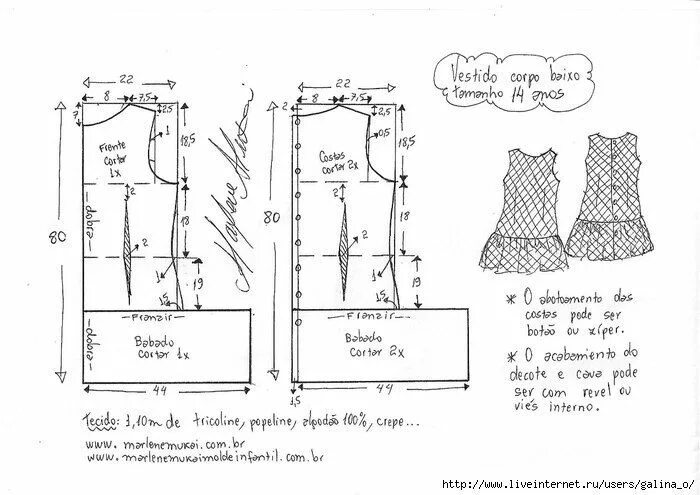 Vestido corpo baixo
tamanho 14 anos
22
8
7,5
7
2,5
1
18,5
Frente
cortar
1x
2
dobra
18
80
2
1
19
1,5
Franzir
dobra
Babado
cortar 1x
44
Marlene Mukai
22
2
8
7,5
2,5
0,5
18,5
Costas
cortar 2x
2
18
80
2
1
19
1,5
Franzir
Babado
cortar 2x
44
1,5
* O abotoamento das
costas pode ser
botão ou zíper.
* O acabamento do
decote e cava pode
ser com revel ou
viés interno.
Tecido: 1,10m de tricoline, popeline, algodão 100%, crepe...
www.marlenemukai.com.br
www.marlenemukaimoldeinfantil.com.br
http://www.liveinternet.ru/users/galina_o/